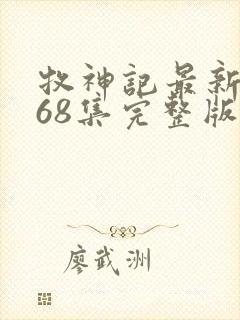 牧神记最新
68集完整版
廖武洲